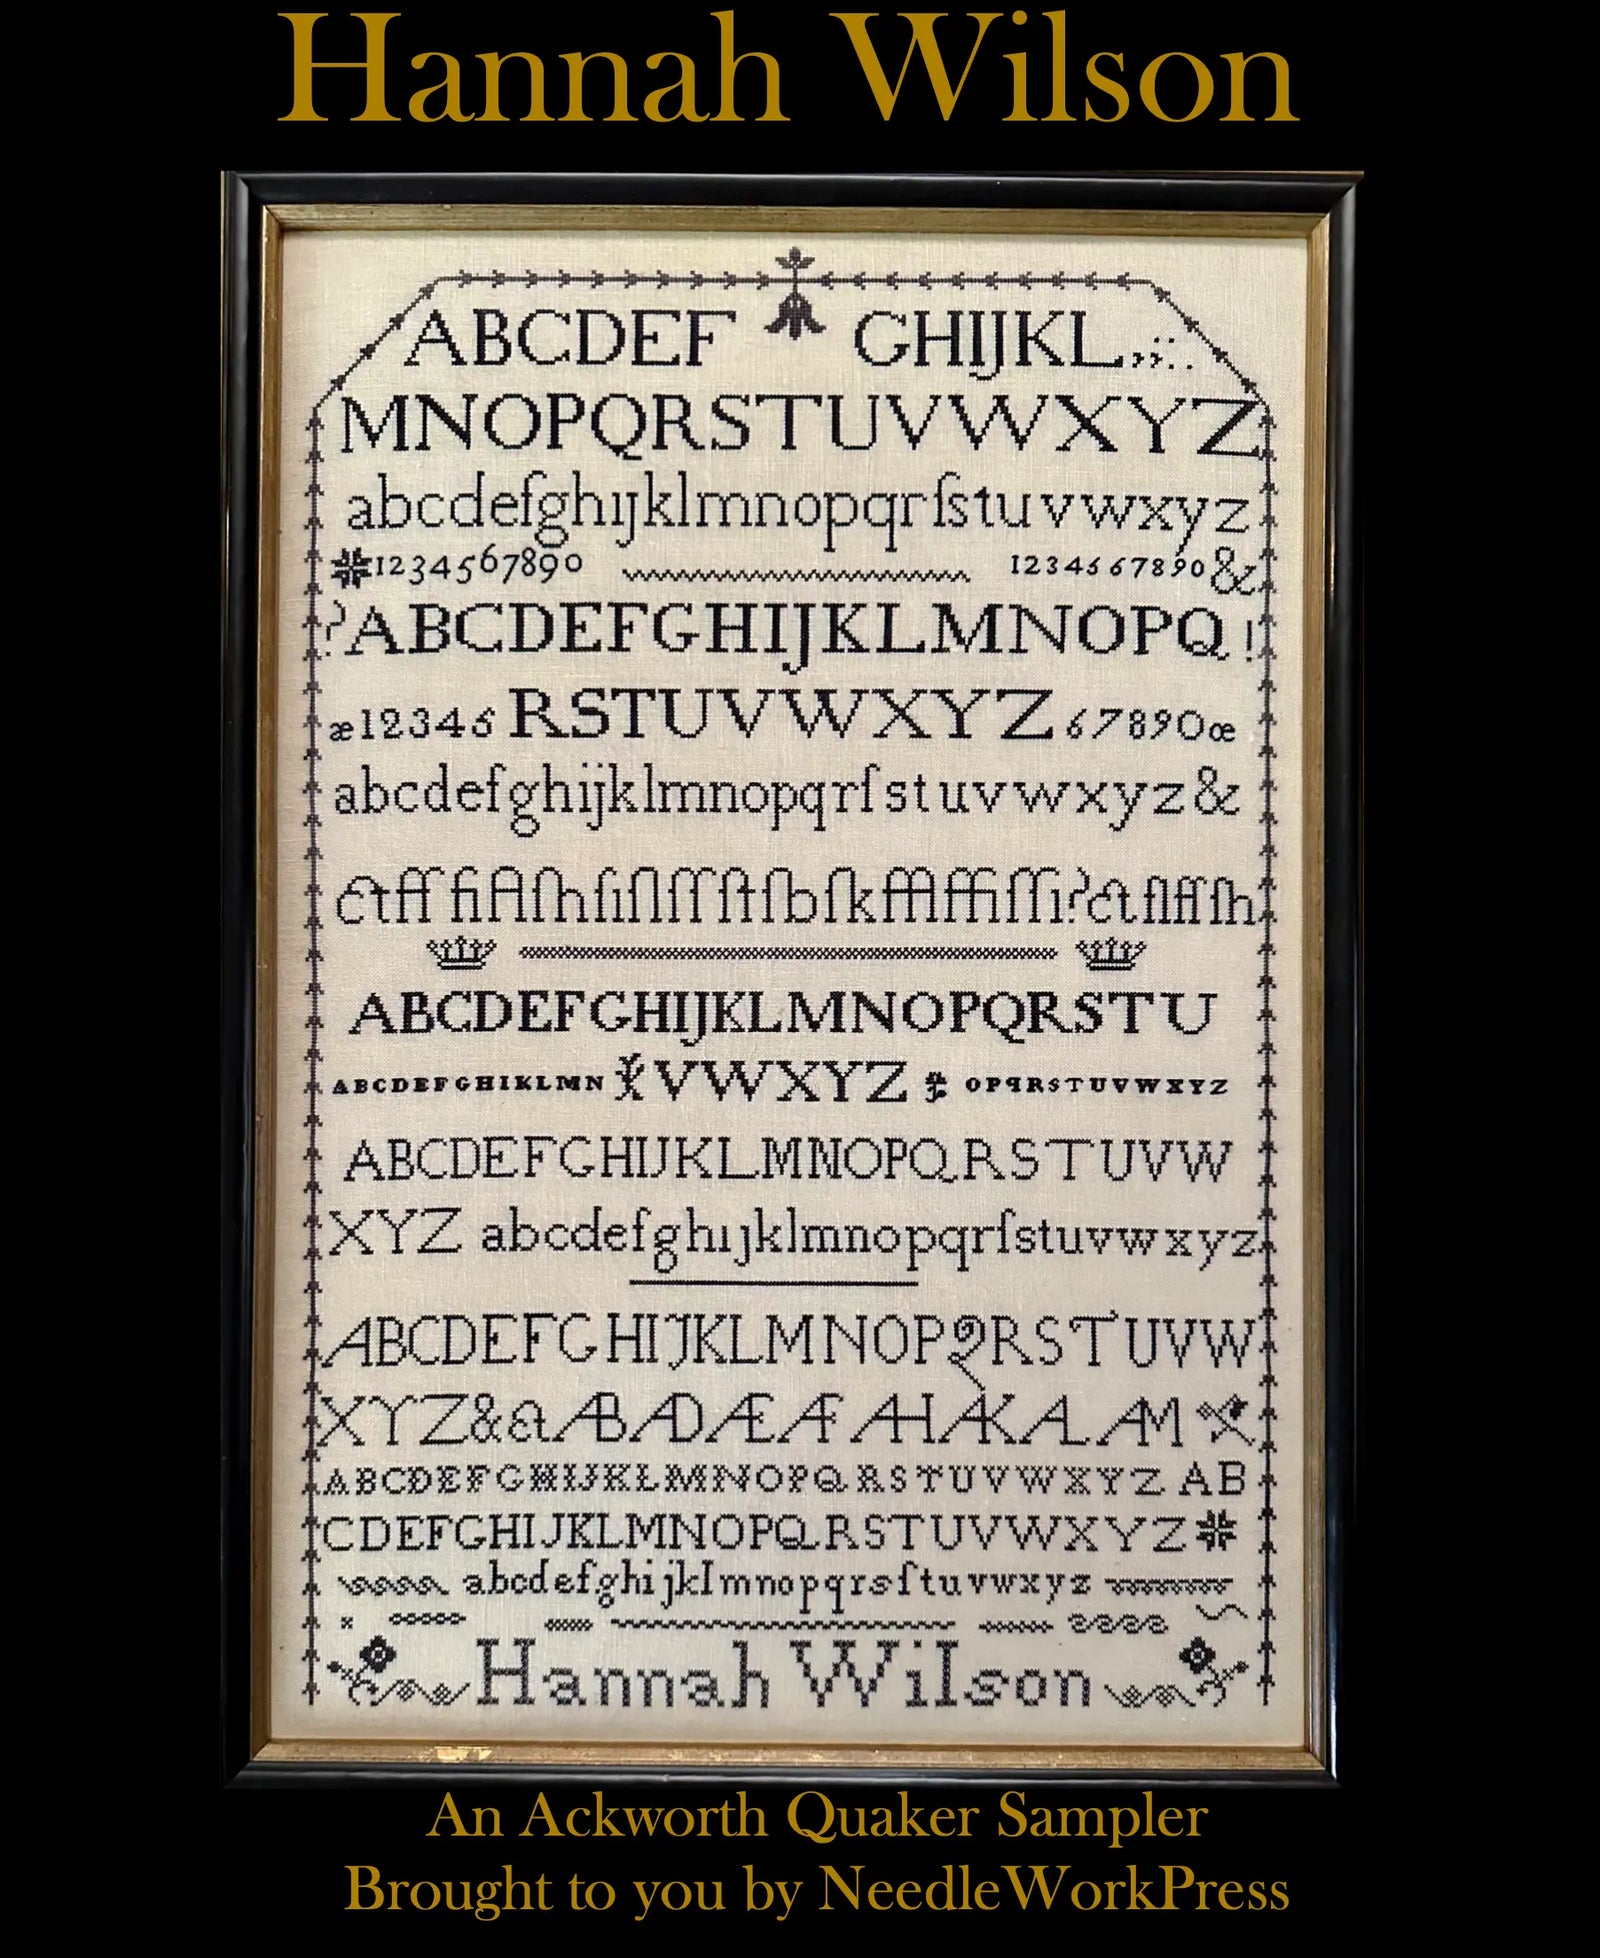 Hannah Wilson
ABCDEF GHIJKL,;:.
MNOPQRSTUVWXYZ
abcdefghijklmnopqrſstuvwxyz
1234567890 1234567890&
?ABCDEFGHIJKLMNOPQ!
æ12345 RSTUVWXYZ 67890œ
abcdefghijklmnopqrſstuvwxyz&
ctfffiflſhſiſlſſſtſbſkfflffiſſi?ctflffſh
ABCDEFGHIJKLMNOPQRSTU
ABCDEFGHIKLMN VWXYZ OPqRSTUVWXYZ
ABCDEFGHIJKLMNOPQRSTUVW
XYZ abcdefghijklmnopqrſstuvwxyz
ABCDEFGHIJKLMNOPQRSTUVW
XYZ&ct AB AD Æ AF AH AK AL AM
ABCDEFGHIJKLMNOPQRSTUVWXYZ AB
CDEFGHIJKLMNOPQRSTUVWXYZ
abcdefghijklmnopqrsſtuvwxyz
Hannah Wilson
An Ackworth Quaker Sampler
Brought to you by NeedleWorkPress